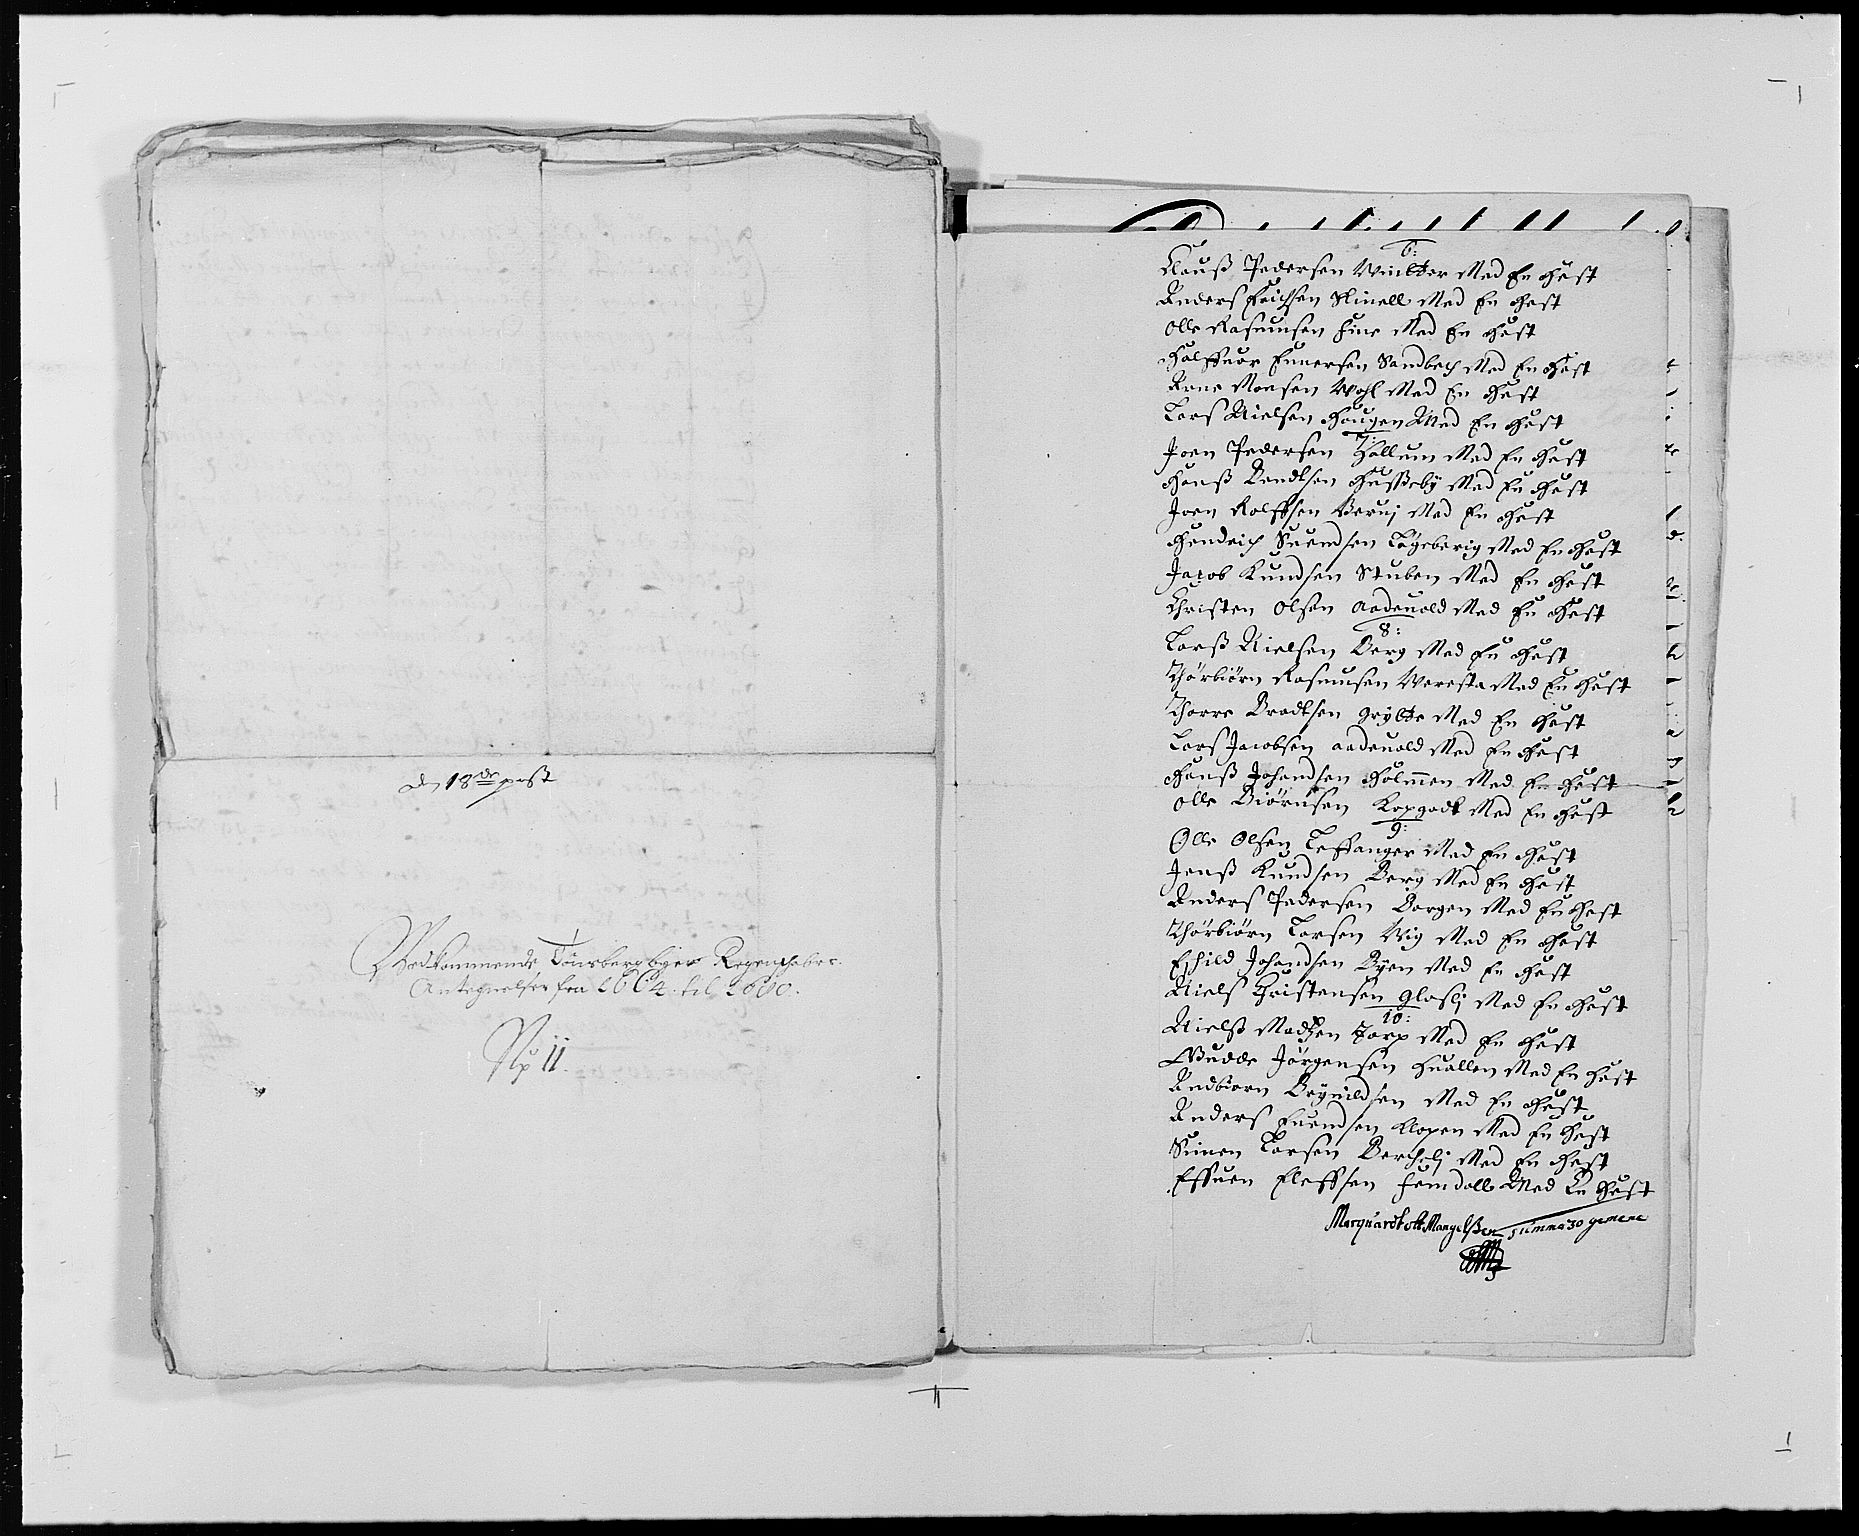 dn 18de post
Vedkommende Tönsberg byes Regenschabers
Antegnelser fra 1664 til 1680.
No 11.
6:
Clauß Pedersen Winlter Med En Hest
Anders Erichsen Slinell Med En Hest
Olle Rasmusen Fine Med En Hest
Halffuor Eunersen Sandbech Med En Hest
Arne Monsen Wohl Med En Hest
Lars Nielsen Hougen Med En Hest
7:
Joen Pedersen Hallum Med En Hest
Hanß Bendtsen Hußeby Med En Hest
Joen Rolffsen Med En Hest
Hendrich Suendsen Togeberig Med En Hest
Jacob Knudsen Stuben Med En Hest
Christen Olsen Aadeuold Med En Hest
8:
Larß Nielsen Berg Med En Hest
Thorbiörn Rasmusen Weresta Med En Hest
Thorre Brodtsen Grÿtte Med En Hest
Lars Jacobsen Aadeuold Med En Hest
Hanß Johandsen Holmen Med En Hest
Olle Biörnsen Kopgodt Med En Hest
9:
Olle Olsen Teffanger Med En Hest
Jenß Knudsen Berg Med En Hest
Anders Pedersen Borgen Med En Hest
Thorbiörn Larsen Wig Med En Hest
Eschild Johandsen Bÿen Med En Hest
Niels Christensen Med En Hest
10:
Nielß Madtzen Torp Med En Hest
Gudde Jörgensen Huallen Med En Hest
Andbiorn Brÿnildsen Med En Hest
Anders Euendsen Klopen Med En Hest
Simen Larsen Med En Hest
Effuen Eleffsen Femdall Med En Hest
Marquardt Mangelsen summa 30 gemene